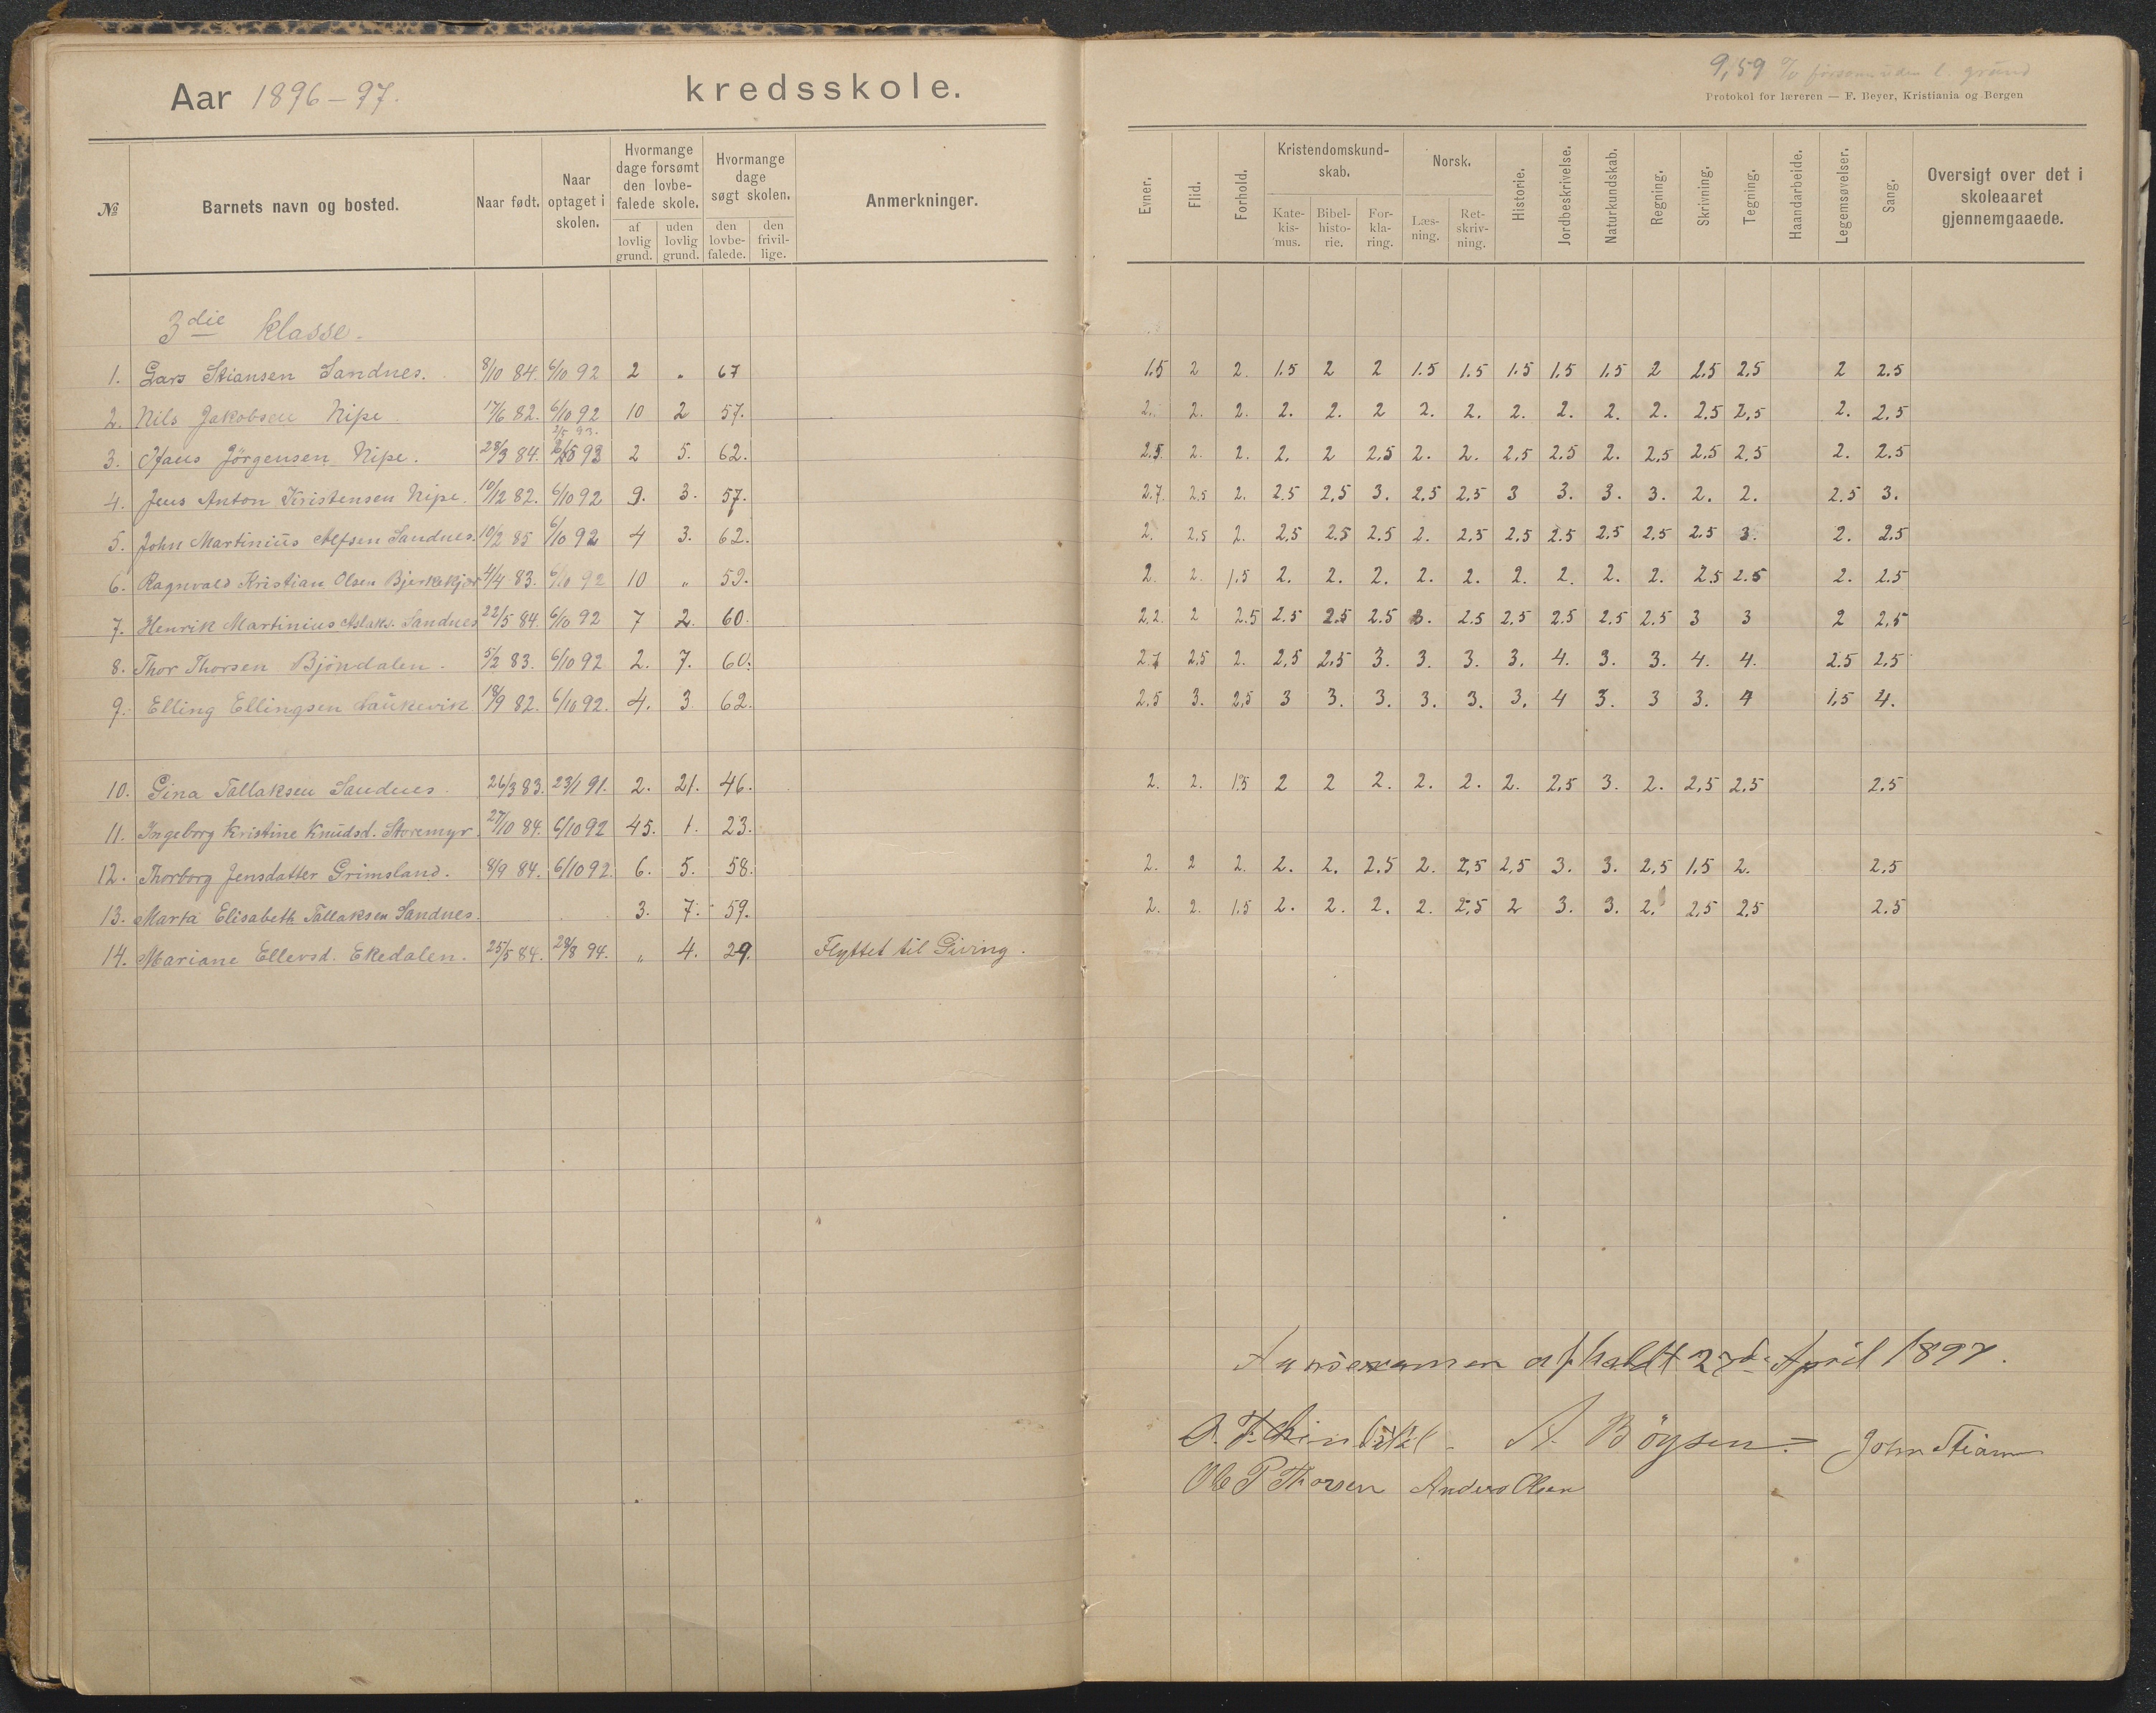 Aar 1896-97. kredsskole.
№ Barnets navn og bosted. Naar født. Naar optaget i skolen. Hvormange dage forsømt den lovbefalede skole. af lovlig grund. uden lovlig grund. Hvormange dage søgt skolen. den lovbefalede. den frivillige. Anmerkninger.
3die klasse.
1. Lars Stiansen Sandnes. 8/10 84. 6/10 92 2 „ 67
2. Nils Jakobsen Nipe 17/6 82. 6/10 92 10 2 57.
2/5 93.
3. Hans Jörgensen Nipe. 28/3 84. 2/5 93 2 5. 62.
4. Jens Anton Kristensen Nipe. 10/12 82. 6/10 92 9. 3. 57.
5. John Martinius Alfsen Sandnes. 10/2 85 6/10 92 4 3. 62.
6. Ragnvald Kristian Olsen Bjerkekjær 4/4 83. 6/10 92 10 „ 59.
7. Henrik Martinius Aslaks. Sandnes 22/5 84. 6/10 92 7 2. 60.
8. Thor Thorsen Bjöndalen. 5/2 83. 6/10 92 2. 7. 60.
9. Elling Ellingsen Laukevik 18/9 82. 6/10 92. 4. 3 62.
10. Gina Tallaksen Sandnes. 26/3 83. 23/1 91. 2. 21. 46.
11. Ingeborg Kristine Knudsd. Storemyr. 27/10 84. 6/10 92 45. 1. 23.
12. Thorborg Jensdatter Grimsland. 8/9 84. 6/10 92. 6. 5. 58.
13. Marta Elisabeth Tallaksen Sandnes. 3. 7. 59.
14. Mariane Ellevsd. Ekedalen. 25/5 84. 28/8 94. „ 4. 29. Flyttet til Giving.
9,59 % forsømt uden l. grund
Protokol for læreren — F. Beyer, Kristiania og Bergen
Evner. Flid. Forhold. Kristendomskundskab. Katekismus. Bibelhistorie. Forklaring. Norsk. Læsning. Retskrivning. Historie. Jordbeskrivelse. Naturkundskab. Regning. Skrivning. Tegning. Haandarbeide. Legemsøvelser. Sang. Oversigt over det i skoleaaret gjennemgaaede.
1.5 2 2. 1.5 2 2 1.5 1.5 1.5 1.5 1.5 2 2.5 2.5 2 2.5
2. 2. 2. 2. 2. 2 2. 2. 2. 2. 2. 2. 2.5 2.5 2. 2.5
2.5. 2. 2. 2. 2 2.5 2. 2. 2.5 2.5 2. 2.5 2.5 2.5 2. 2.5
2.7. 2.5 2. 2.5 2.5 3. 2.5 2.5 3 3. 3. 3. 2. 2. 2.5 3.
2. 2.5 2. 2.5 2.5 2.5 2. 2.5 2.5 2.5 2.5 2.5 2.5 3. 2. 2.5
2. 2. 1.5 2. 2. 2. 2. 2. 2. 2. 2. 2. 2.5 2.5 2. 2.5
2.2. 2 2.5 2.5 2.5 2.5 3. 2.5 2.5 2.5 2.5 2.5 3 3 2 2.5
2.7 2.5 2. 2.5 2.5 3. 3. 3. 3. 4. 3. 3. 4. 4. 2.5 2.5
2.5 3. 2.5 3 3. 3. 3. 3. 3. 4 3. 3 3. 4 1.5 4.
2. 2. 1.5 2 2 2. 2. 2. 2. 2.5 3. 2. 2.5 2.5 2.5
2. 2 2. 2. 2. 2.5 2. 2.5 2.5 3. 3. 2.5 1.5 2. 2.5
2. 2. 1.5 2. 2. 2. 2. 2.5 2 3. 3. 2. 2.5 2.5 2.5
Aarsexamen afholdt 27d April 1897.
A. Böysen. John Stians
Ole P Thorsen Anders Olsen